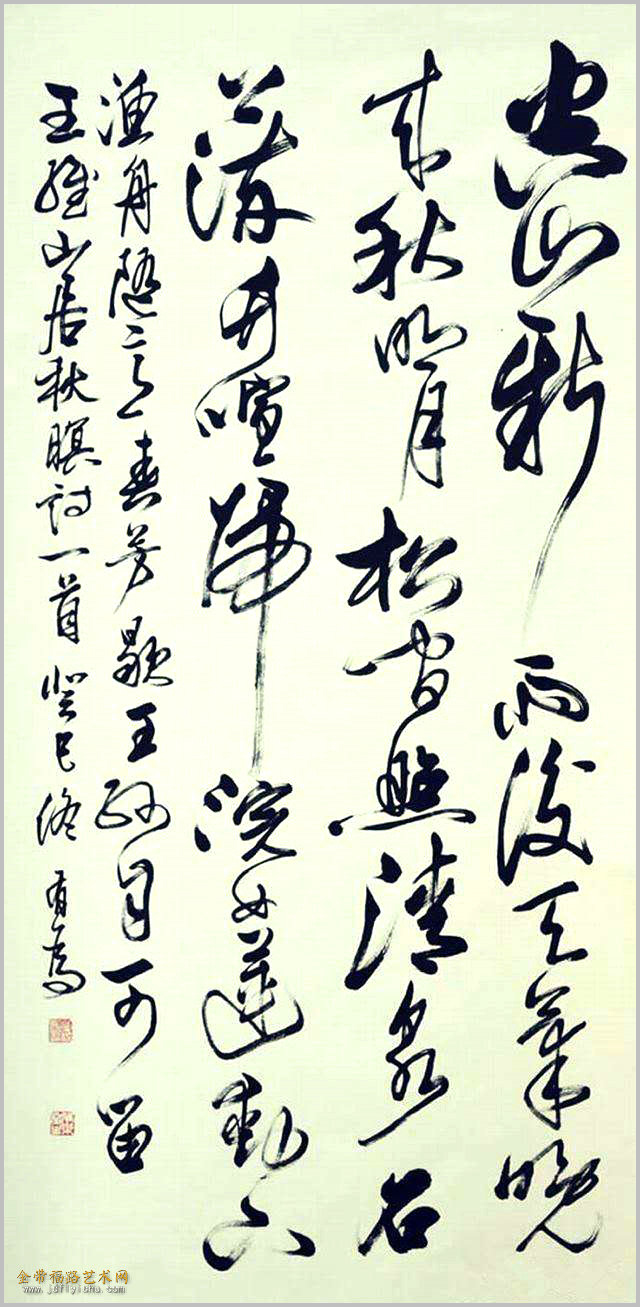 空山新雨後天氣晚
來秋明月松間照清泉石
上流竹喧歸浣女蓮動下
漁舟隨意春芳歇王孫自可留
王維山居秋暝詩一首 癸巳 佟有為
金带福路艺术网
www.jdflyishu.com